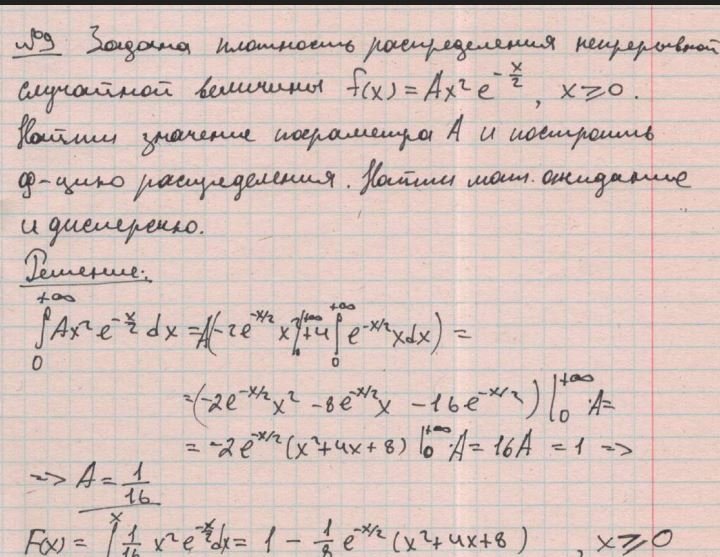 №9 Задана плотность распределения непрерывной
случайной величины f(x) = Ax² e^{-x/2}, x ≥ 0.
Найти значение параметра A и построить
ф-цию распределения. Найти мат. ожидание
и дисперсию.
Решение:
∫₀^{+∞} Ax² e^{-x/2} dx = A(-2e^{-x/2} x² |₀^{+∞} + 4 ∫₀^{+∞} e^{-x/2} x dx) =
= (-2e^{-x/2} x² - 8e^{-x/2} x - 16e^{-x/2}) |₀^{+∞} · A =
= -2e^{-x/2} (x² + 4x + 8) |₀^{+∞} · A = 16A = 1 =>
=> A = 1/16
F(x) = ∫^x 1/16 x² e^{-x/2} dx = 1 - 1/8 e^{-x/2} (x² + 4x + 8), x ≥ 0